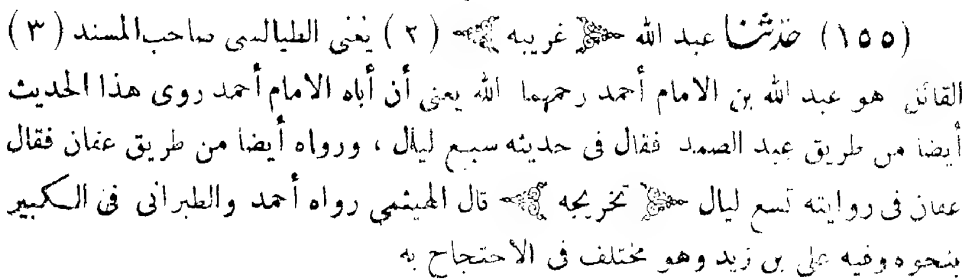 (١٥٥) حدثنا عبد الله ﴿ غريبه ﴾ (٢) يعنى الطيالسى صاحب المسند (٣)
القائل هو عبد الله بن الامام أحمد رحمهما الله يعنى أن أباه الامام أحمد روى هذا الحديث
أيضا من طريق عبد الصمد فقال فى حديثه سبع ليال ، ورواه أيضا من طريق عفان فقال
عفان فى روايته تسع ليال ﴿ تخريجه ﴾ قال الهيثمى رواه أحمد والطبرانى فى الكبير
بنحوه وفيه على بن زيد وهو مختلف فى الاحتجاج به